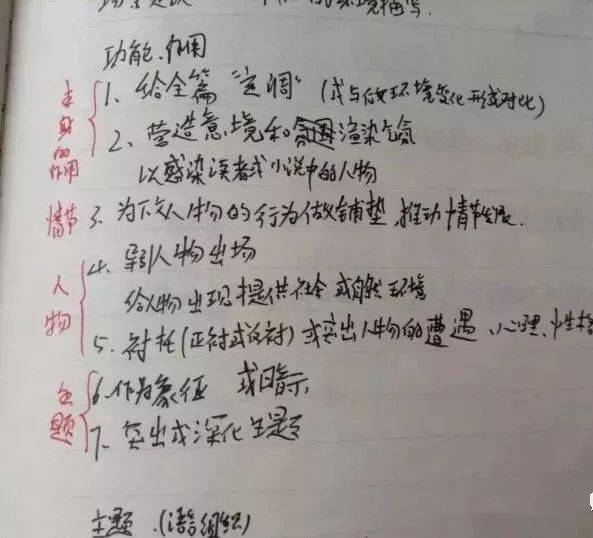 功能、作用
本身的作用
1、给全篇"定调"(或与后文环境变化形成对比)
2、营造意境和渲染气氛
以感染读者或小说中的人物
情节
3、为下文人物的行为做铺垫,推动情节发展.
人物
4、引人物出场
给人物出现提供社会或自然环境
5、衬托(正衬或反衬)或突出人物的遭遇、心理、性格
主题
6、作为象征 或暗示
7、突出或深化主题
主题 (语言组织)